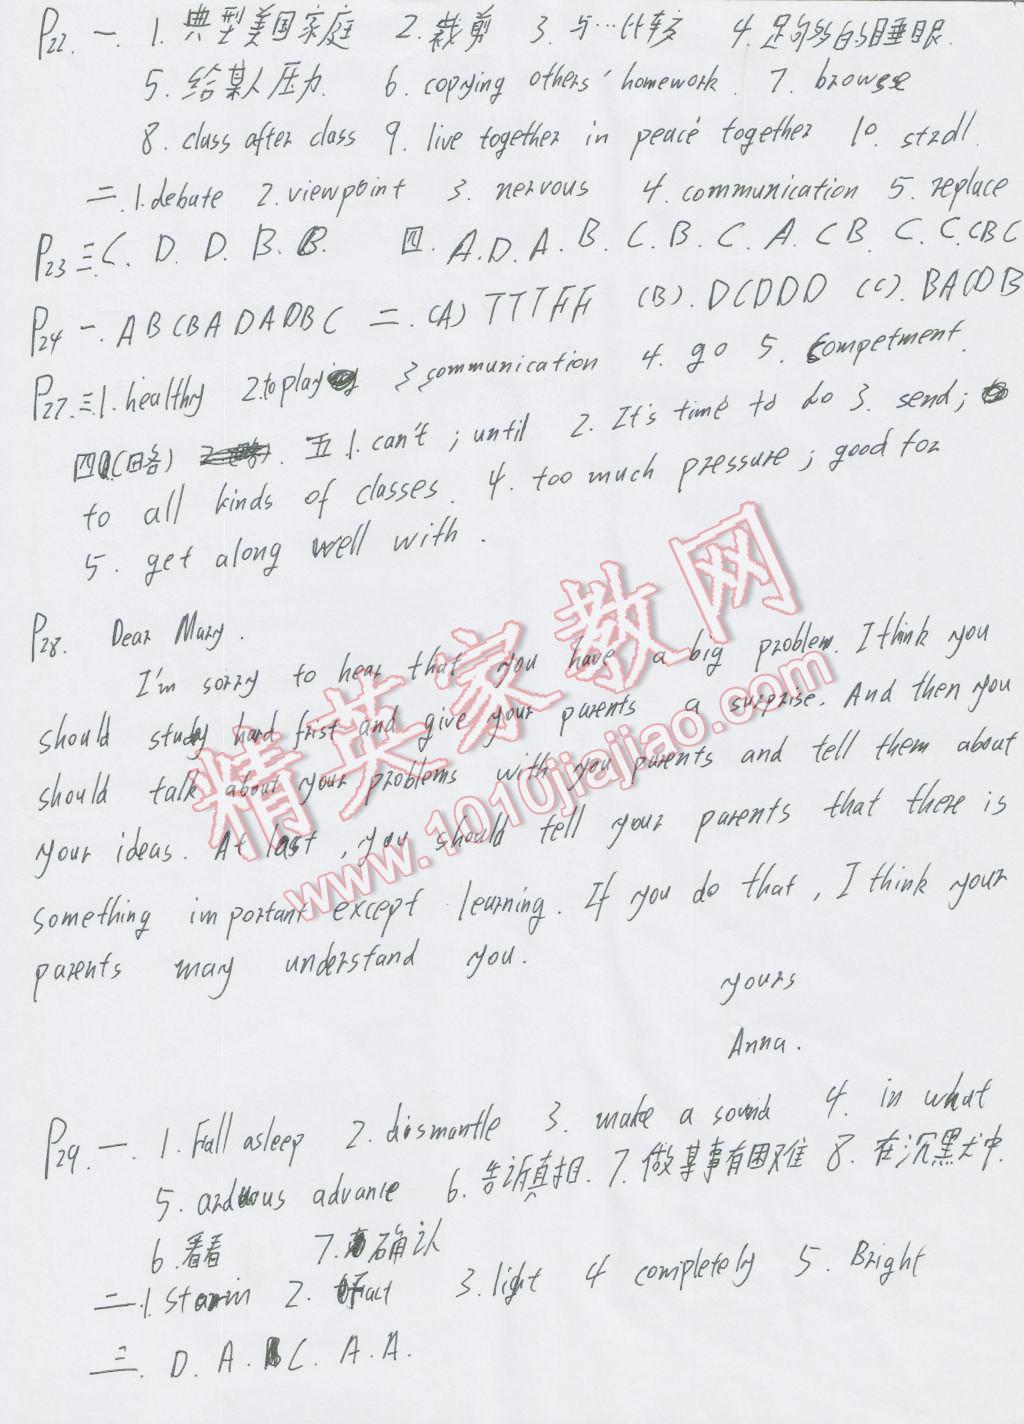 P22. 一. 1. 典型美国家庭 2. 裁剪 3. 与…比较 4. 足够多的睡眠.
5. 给某人压力. 6. copying others' homework. 7. browse
8. class after class 9. live together in peace together 10. stroll.
二. 1. debate 2. viewpoint 3. nervous 4. communication 5. replace
P23 三. C. D. D. B. B. 四. A. D. A. B. C. B. C. A. C B. C. C. C B C
P24 一. A B C B A D A D B C 二. (A) T T T F F (B). D C D D D (C). B A C D B
P27. 三. 1. healthy 2. to play 3. communication 4. go 5. competment.
四 (略) 五 1. can't ; until 2. It's time to do 3. send ;
to all kinds of classes. 4. too much pressure ; good for
5. get along well with.
P28. Dear Mary.
I'm sorry to hear that you have a big problem. I think you
should study hard first and give your parents a surprise. And then you
should talk about your problems with you parents and tell them about
your ideas. At last , you should tell your parents that there is
something important except learning. If you do that , I think your
parents may understand you.
yours
Anna.
P29. 一. 1. Fall asleep 2. dismantle 3. make a sound 4. in what
5. arduous advance 6. 告诉真相. 7. 做某事有困难 8. 在沉黑犬中.
6. 看看 7. 确认
二. 1. Storm 2. fact 3. light 4 completely 5. Bright
三. D. A. C. A. A.
精英家教网
www.1010jiajiao.com